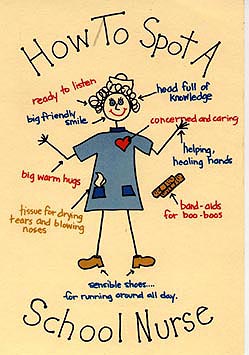 How To Spot A
ready to listen
head full of
knowledge
big friendly
smile
concerned and caring
helping,
healing hands
big warm hugs
band-aids
for boo-boos
tissue for drying
tears and blowing
noses
sensible shoes....
for running around all day.
School Nurse